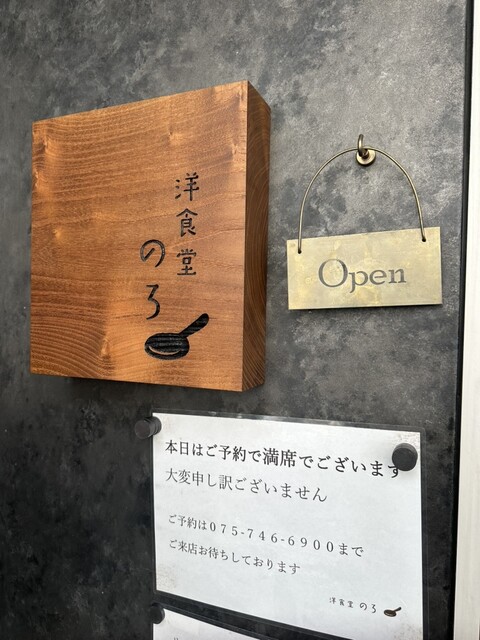 洋食堂
のろ
Open
本日はご予約で満席でございます
大変申し訳ございません
ご予約は075-746-6900まで
ご来店お待ちしております
洋食堂 のろ